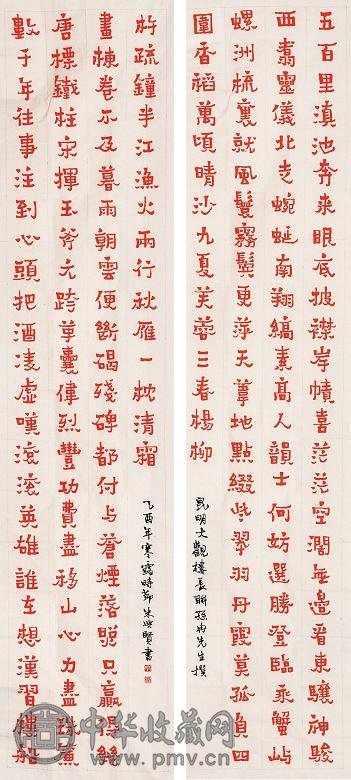 五百里滇池奔來眼底披襟岸幘喜茫茫空闊無邊看東驤神駿
西翥靈儀北走蜿蜒南翔縞素高人韻士何妨選勝登臨乘蟹屿
螺洲梳裹就風鬟霧鬢更萍天葦地點綴些翠羽丹霞莫孤負四
圍香稻萬頃晴沙九夏芙蓉三春楊柳
昆明大觀樓長聯孫冉先生撰
數千年往事注到心頭把酒凌虛嘆滾滾英雄誰在想漢習樓船
唐標鐵柱宋揮玉斧元跨革囊偉烈豐功費盡移山心力盡珠簾
畫棟卷不及暮雨朝雲便斷碣殘碑都付与蒼煙落照只贏得幾
杵疏鐘半江漁火兩行秋雁一枕清霜
乙酉年寒露時節朱興賢書
中华收藏网
www.pmv.cn